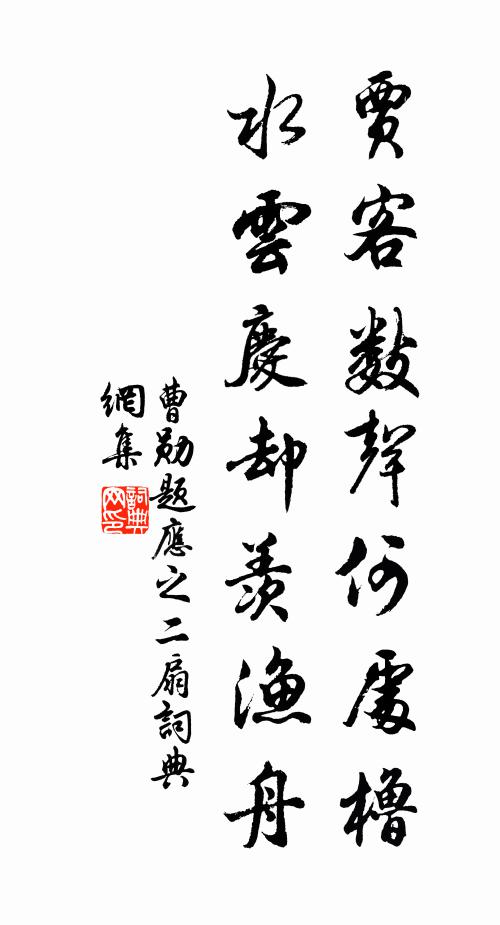 賈客數聲何處櫓
水雲慶却羨漁舟
曹勛題應之二扇詞典
網集
詞典
网印